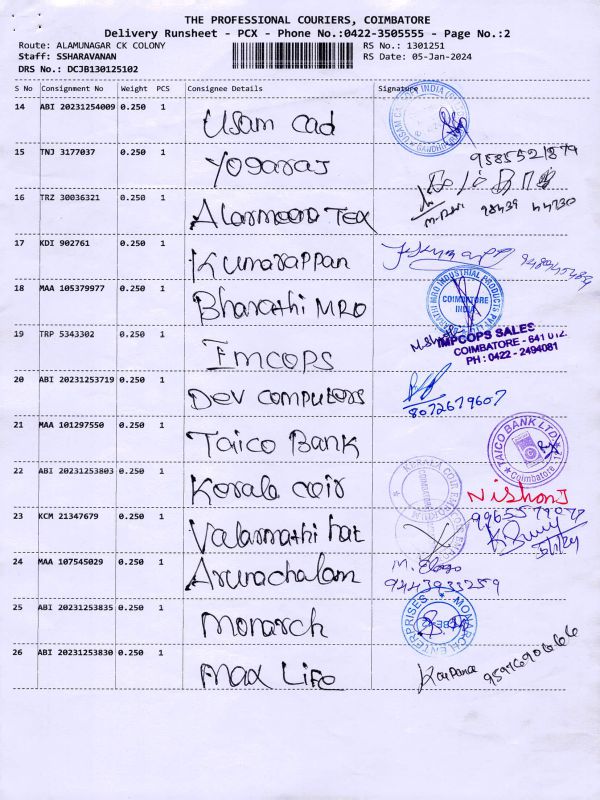 THE PROFESSIONAL COURIERS, COIMBATORE
Delivery Runsheet - PCX - Phone No.:0422-3505555 - Page No.:2
Route: ALAMUNAGAR CK COLONY RS No.: 1301251
Staff: SSHARAVANAN RS Date: 05-Jan-2024
DRS No.: DCJB130125102
S No Consignment No Weight PCS Consignee Details Signature
14 ABI 20231254009 0.250 1 Usam Cad
15 TNJ 3177037 0.250 1 Yogaraj
16 TRZ 30036321 0.250 1 Alarmeera TEX
17 KDI 902761 0.250 1 Kumarappan
18 MAA 105379977 0.250 1 Bharathi MRO
MRO INDUSTRIAL PRODUCTS
COIMBATORE
INDIA
19 TRP 5343302 0.250 1 IMCOPS
IMPCOPS SALES
COIMBATORE - 641 012.
PH : 0422 - 2494081
20 ABI 20231253719 0.250 1 Dev computers
8072679607
21 MAA 101297550 0.250 1 Taico Bank
TAICO BANK LTD.
Coimbatore
22 ABI 20231253803 0.250 1 Kerala coir
KERALA COIR
Nishon J
23 KCM 21347679 0.250 1 Valarmathi hat
24 MAA 107545029 0.250 1 Arunachalam
9443933259
25 ABI 20231253835 0.250 1 Monarch
MONARCH ENTERPRISES
26 ABI 20231253830 0.250 1 Max Life